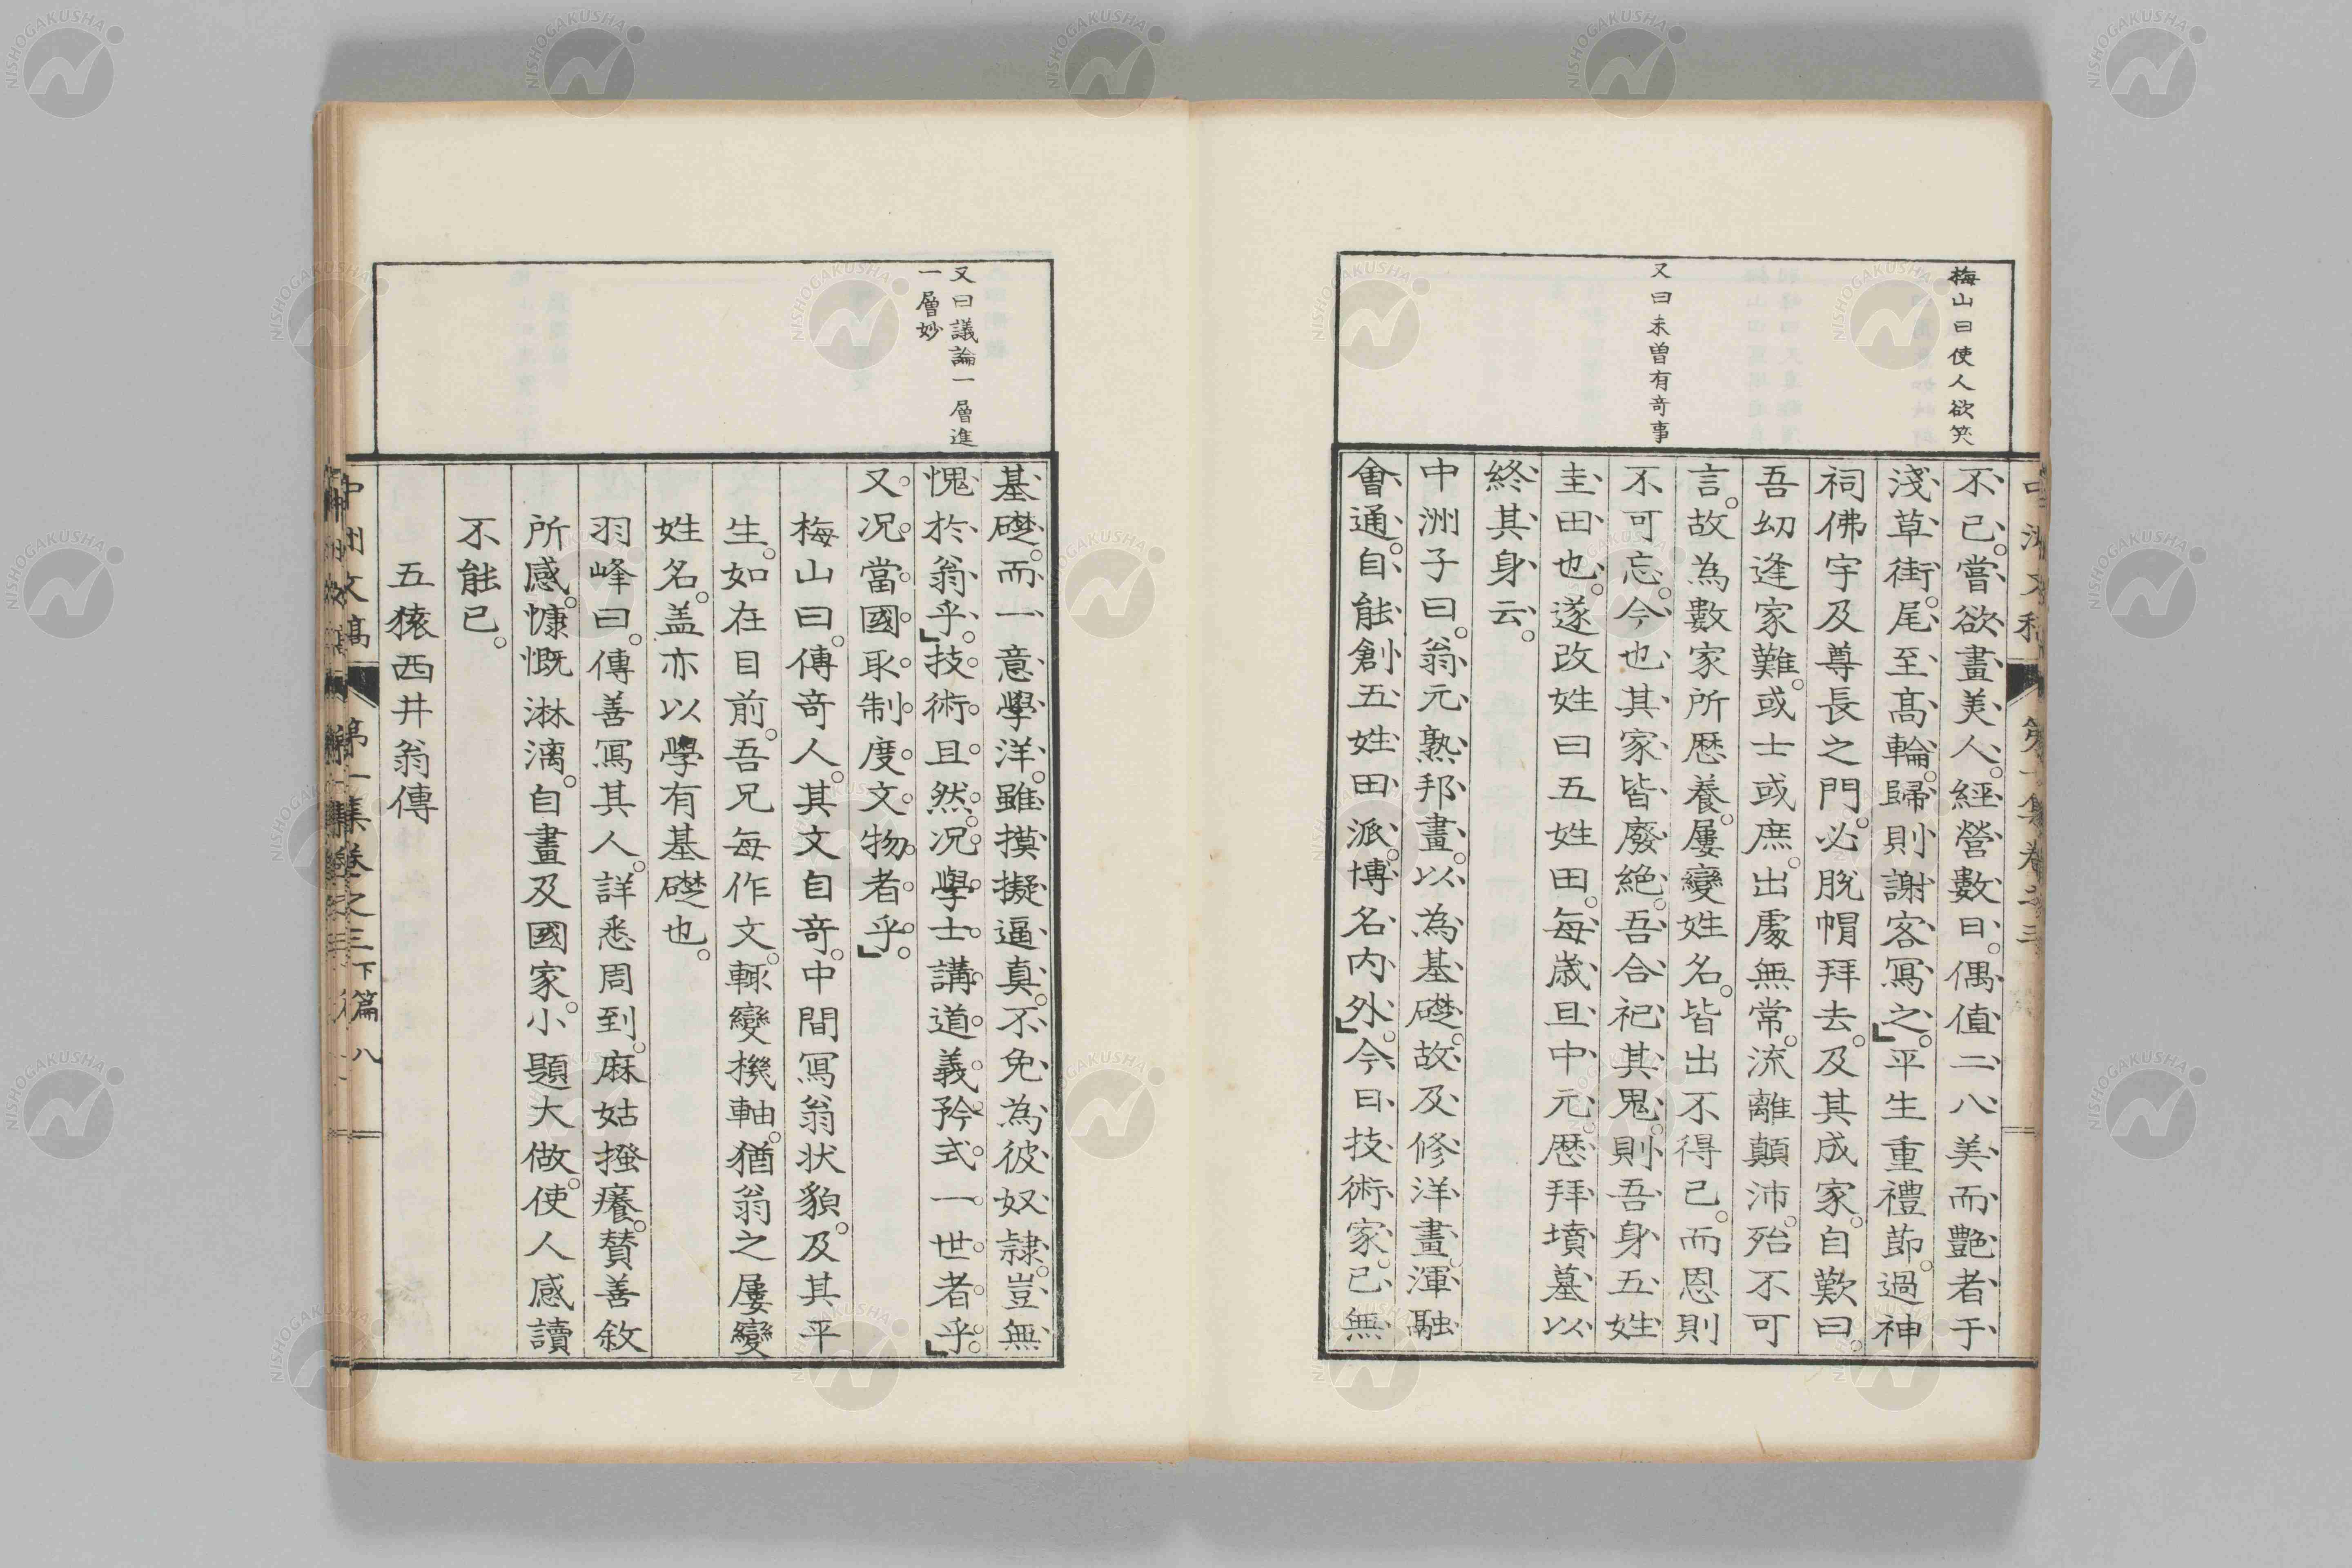 梅山曰使人欲笑
又曰未曽有奇事
不已。嘗欲畫美人。經營數日。偶值二八美而艷者于
淺草街。尾至高輪。歸則謝客寫之。」平生重禮節。過神
祠佛宇及尊長之門。必脫帽拜去。及其成家。自歎曰。
吾幼逢家難。或士或庶。出處無常。流離顛沛。殆不可
言。故為數家所歷養。屢變姓名。皆出不得已。而恩則
不可忘。今也其家皆廢絕。吾合祀其鬼。則吾身五姓
圭田也。遂改姓曰五姓田。每歲旦中元歷拜墳墓以
終其身云。
中洲子曰。翁元熟邦畫。以為基礎。故及修洋畫。渾融
會通。自能創五姓田派。博名內外。」今日技術家。已無
又曰議論一層進
一層妙
基礎。而一意學洋。雖摸擬逼真。不免為彼奴隷。豈無
愧於翁乎。」技術且然。况學士講道義矜式一世者乎。」
又况當國取制度文物者乎。」
梅山曰。傳奇人。其文自奇。中間寫翁状貌。及其平
生。如在目前。吾兄每作文。輒變機軸。猶翁之屢變
姓名。盖亦以學有基礎也。
羽峰曰。傳善寫其人。詳悉周到。麻姑搔癢。賛善敘
所感。慷慨淋漓。自畫及國家。小題大做。使人感讀
不能已。
五猿西井翁傳
中洲文稿 第一集卷之三下篇 八